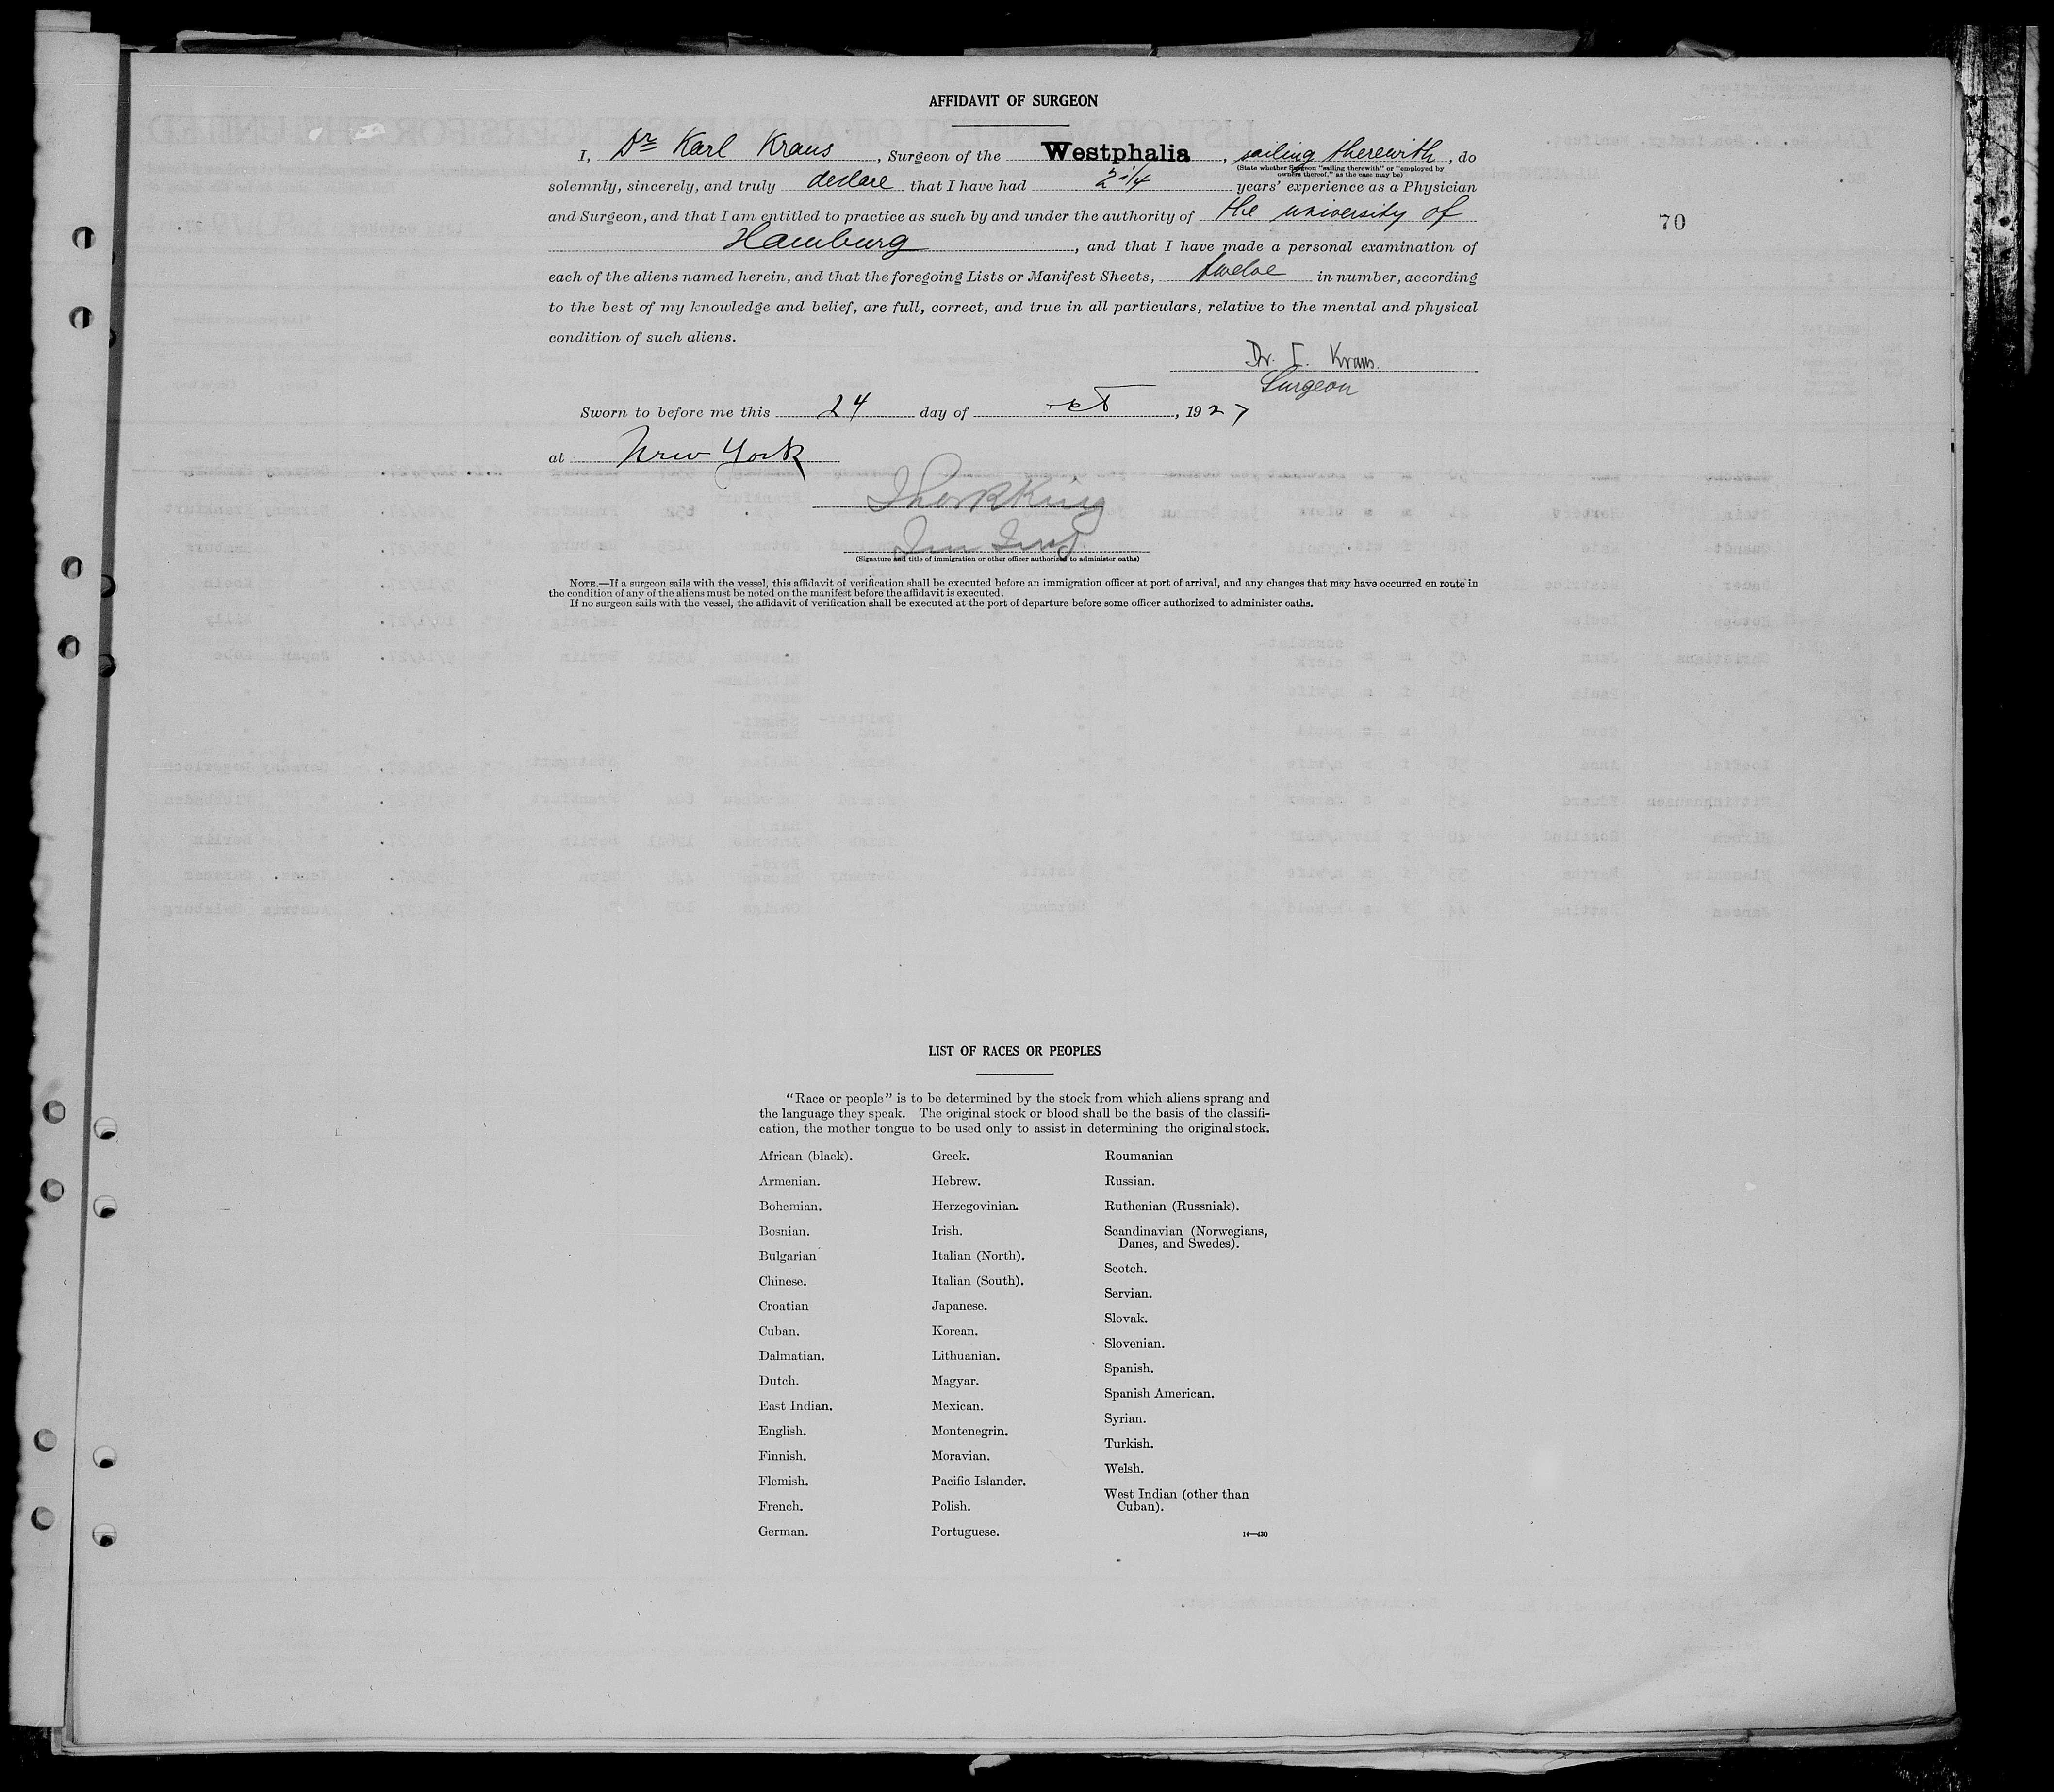 AFFIDAVIT OF SURGEON
I, Dr Karl Kraus, Surgeon of the Westphalia, sailing therewith, do
(State whether Surgeon "sailing therewith" or "employed by
owners thereof," as the case may be)
solemnly, sincerely, and truly declare that I have had 2 1/4 years' experience as a Physician
and Surgeon, and that I am entitled to practice as such by and under the authority of the university of
70
Hamburg, and that I have made a personal examination of
each of the aliens named herein, and that the foregoing Lists or Manifest Sheets, twelve in number, according
to the best of my knowledge and belief, are full, correct, and true in all particulars, relative to the mental and physical
condition of such aliens.
Dr. Kraus.
Surgeon
Sworn to before me this 24 day of Oct, 1927
at New York
(Signature and title of immigration or other officer authorized to administer oaths)
NOTE.—If a surgeon sails with the vessel, this affidavit of verification shall be executed before an immigration officer at port of arrival, and any changes that may have occurred en route in
the condition of any of the aliens must be noted on the manifest before the affidavit is executed.
If no surgeon sails with the vessel, the affidavit of verification shall be executed at the port of departure before some officer authorized to administer oaths.
LIST OF RACES OR PEOPLES
"Race or people" is to be determined by the stock from which aliens sprang and
the language they speak. The original stock or blood shall be the basis of the classifi-
cation, the mother tongue to be used only to assist in determining the original stock.
African (black).
Armenian.
Bohemian.
Bosnian.
Bulgarian
Chinese.
Croatian
Cuban.
Dalmatian.
Dutch.
East Indian.
English.
Finnish.
Flemish.
French.
German.
Greek.
Hebrew.
Herzegovinian.
Irish.
Italian (North).
Italian (South).
Japanese.
Korean.
Lithuanian.
Magyar.
Mexican.
Montenegrin.
Moravian.
Pacific Islander.
Polish.
Portuguese.
Roumanian
Russian.
Ruthenian (Russniak).
Scandinavian (Norwegians,
Danes, and Swedes).
Scotch.
Servian.
Slovak.
Slovenian.
Spanish.
Spanish American.
Syrian.
Turkish.
Welsh.
West Indian (other than
Cuban).
14—430